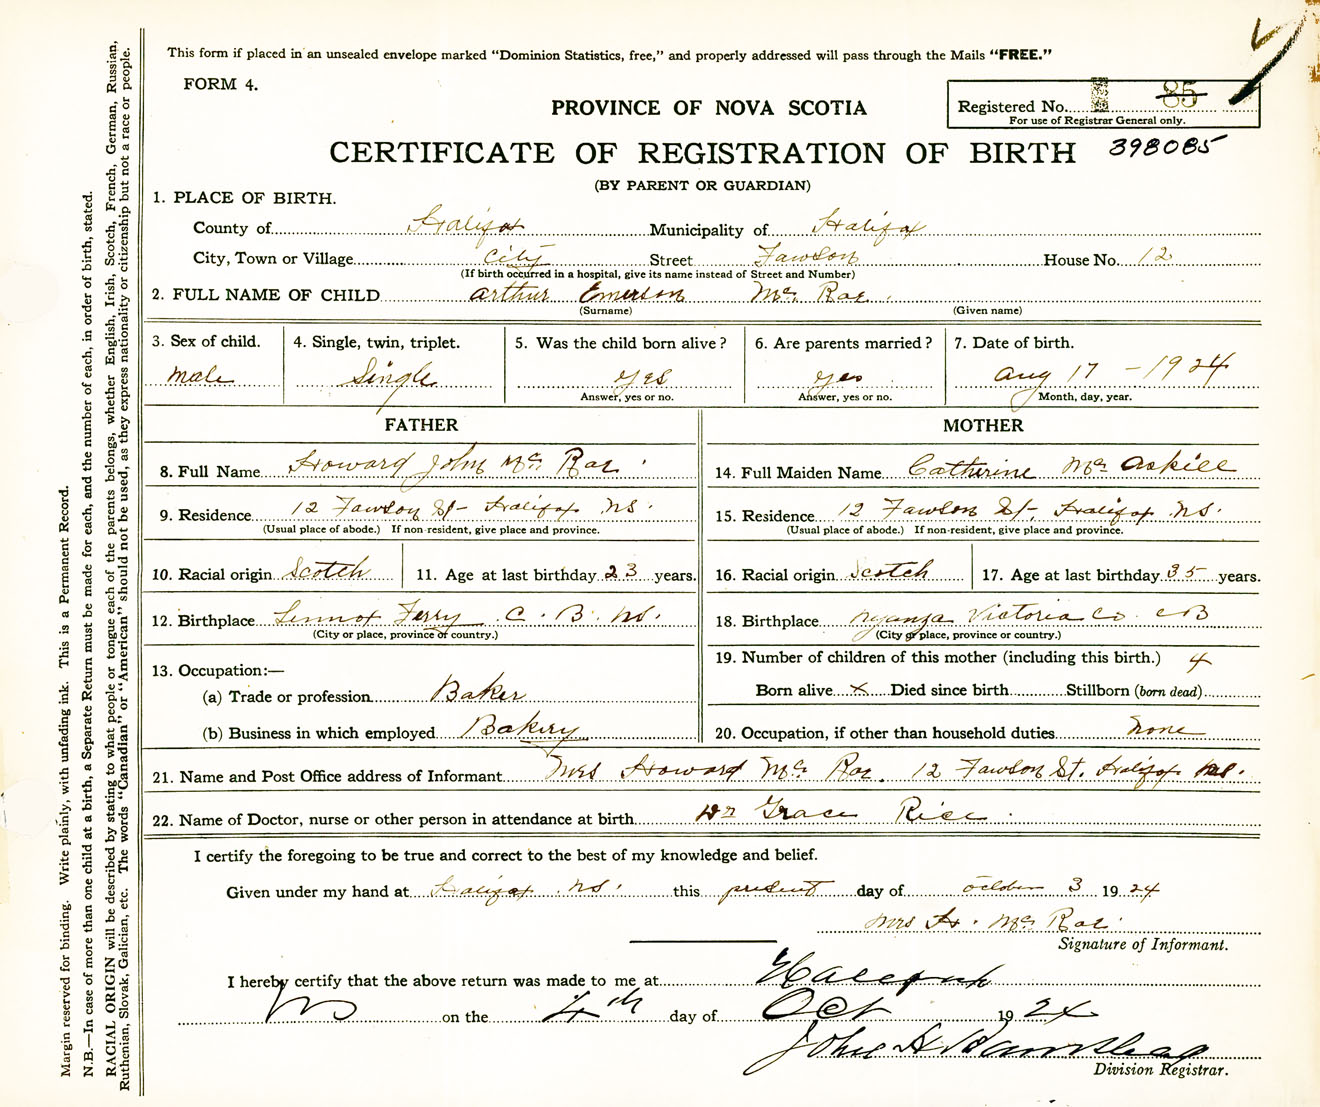 This form if placed in an unsealed envelope marked “Dominion Statistics, free,” and properly addressed will pass through the Mails “FREE.”
FORM 4.
PROVINCE OF NOVA SCOTIA
Registered No. 85
For use of Registrar General only.
CERTIFICATE OF REGISTRATION OF BIRTH 398085
(BY PARENT OR GUARDIAN)
1. PLACE OF BIRTH.
County of Halifax Municipality of Halifax
City, Town or Village City Street Fawson House No. 12
(If birth occurred in a hospital, give its name instead of Street and Number)
2. FULL NAME OF CHILD Arthur Emerson Mc Rae
(Surname) (Given name)
3. Sex of child. 4. Single, twin, triplet. 5. Was the child born alive? 6. Are parents married? 7. Date of birth.
male Single yes yes Aug 17 - 1924
Answer, yes or no. Answer, yes or no. Month, day, year.
FATHER
8. Full Name Howard John Mc Rae
9. Residence 12 Fawson St- Halifax NS.
(Usual place of abode.) If non-resident, give place and province.
10. Racial origin Scotch 11. Age at last birthday 23 years.
12. Birthplace Lennox Ferry C. B. NS.
(City or place, province or country.)
13. Occupation:—
(a) Trade or profession Baker
(b) Business in which employed Bakery
MOTHER
14. Full Maiden Name Catherine Mc Askill
15. Residence 12 Fawson St, Halifax NS.
(Usual place of abode.) If non-resident, give place and province.
16. Racial origin Scotch 17. Age at last birthday 35 years.
18. Birthplace Nyanza Victoria Co. CB
(City or place, province or country.)
19. Number of children of this mother (including this birth.) 4
Born alive x Died since birth Stillborn (born dead)
20. Occupation, if other than household duties none
21. Name and Post Office address of Informant Mrs Howard Mc Rae. 12 Fawson St. Halifax NS.
22. Name of Doctor, nurse or other person in attendance at birth Dr Grace Rice
I certify the foregoing to be true and correct to the best of my knowledge and belief.
Given under my hand at Halifax NS. this present day of October 3 1924
Mrs H. Mc Rae
Signature of Informant.
I hereby certify that the above return was made to me at Halifax
NS on the 4th day of Oct 1924
John H
Division Registrar.
Margin reserved for binding. Write plainly, with unfading ink. This is a Permanent Record.
N.B.—In case of more than one child at a birth, a Separate Return must be made for each, and the number of each, in order of birth, stated.
RACIAL ORIGIN will be described by stating to what people or tongue each of the parents belongs, whether English, Irish, Scotch, French, German, Russian,
Ruthenian, Slovak, Galician, etc. The words “Canadian” or “American” should not be used, as they express nationality or citizenship but not a race or people.